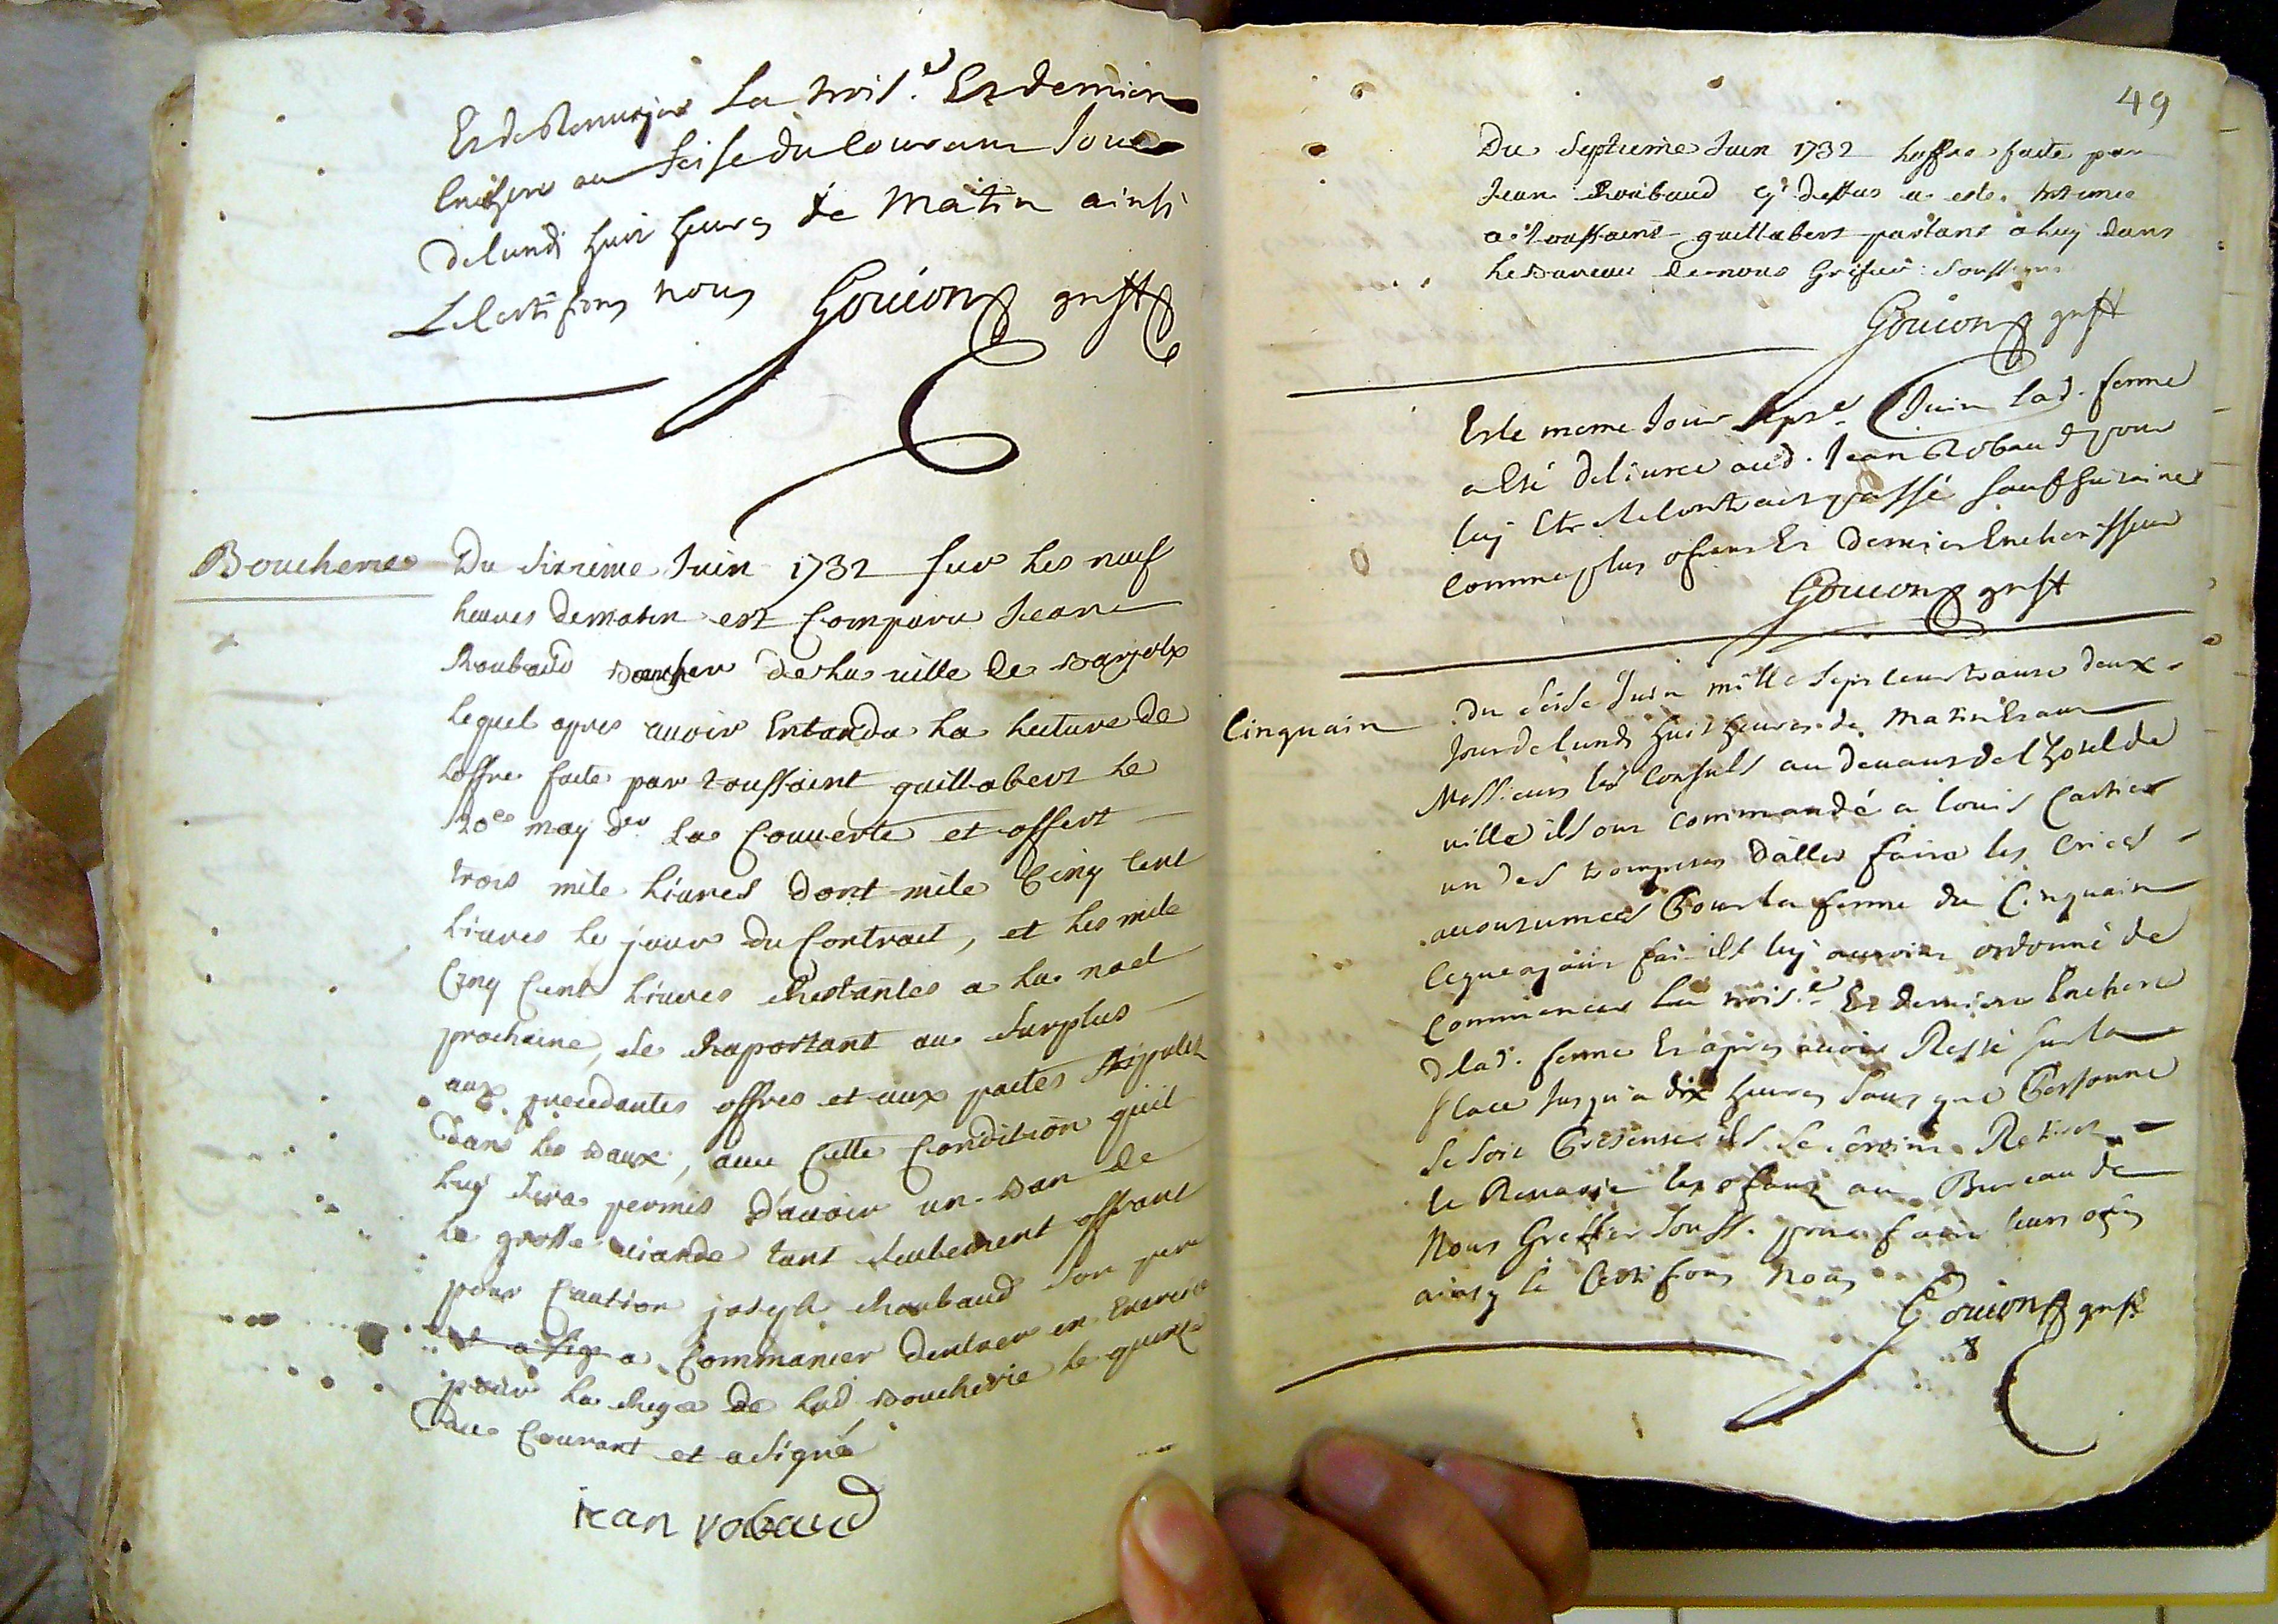 Et de Renvoyer la trois.e Et derniere
Enchere au seise du Courant Jour
de lundi huit heures de matin ainsi
Le Certifions nous Gouion greff
Boucherie
Du sixieme Juin 1732 sur les neuf
heures de matin est Comparu Jean
Roubaud boucher de la ville de barjolx
lequel apres auoir Entandu la lecture de
loffre faite par toussaint guillabert le
20e may der la Couuerte et offert
trois mile liures dont mile Cinq Cent
liures le jour du Contract, et les mile
Cinq Cent liures Restantes a la noel
prochaine, se Raportant au surplus
aux precedantes offres et aux pactes stipulés
dans les baux, auec Cette Condition quil
luy sera permis d'auoir un ban de
le grosse uiande tant seulement offrant
pour Caution joseph Roubaud son pere
a Commancer dentrer en Exercise
pour la Rege de lad boucherie le quinze
du Courant et a signé
iean robaud
49
Du septieme Juin 1732 loffre faite par
Jean Roubaud cy dessus a esté intimee
a toussaint guillabert parlant a luy dans
le bureau de nous Grefier soussigné
Gouion greff
Et le meme Jour sept.e Juin lad. ferme
a Esté deliuree aud. Jean Robaud pour
luy Etre le Contract passé sauf huitaine
comme plus ofrant Et dernier Encherisseur
Gouion greff
Cinquain
Du seise Juin mille sept cent trante deux
Jour de lundi huit heures de matin Etant
Messieurs les Consuls au deuant de l'hotel de
ville ils ont commandé a louis Cartier
un des trompetes d'aller faire les Criees
acoutumees Pour la ferme du Cinquain
Ce que ayant fait ils luy auroient ordonné de
Commencer la trois.e Et derniere Enchere
de lad. ferme Et apres auoir Resté sur la
place Jusqu'a dix heures sans que Personne
se soit Presenté ils se seroint Retirés
Et Renvoyé les ofrans au Bureau de
Nous Greffier souss. pour faire leurs ofres
ainsy le Certifions nous
Gouion greff